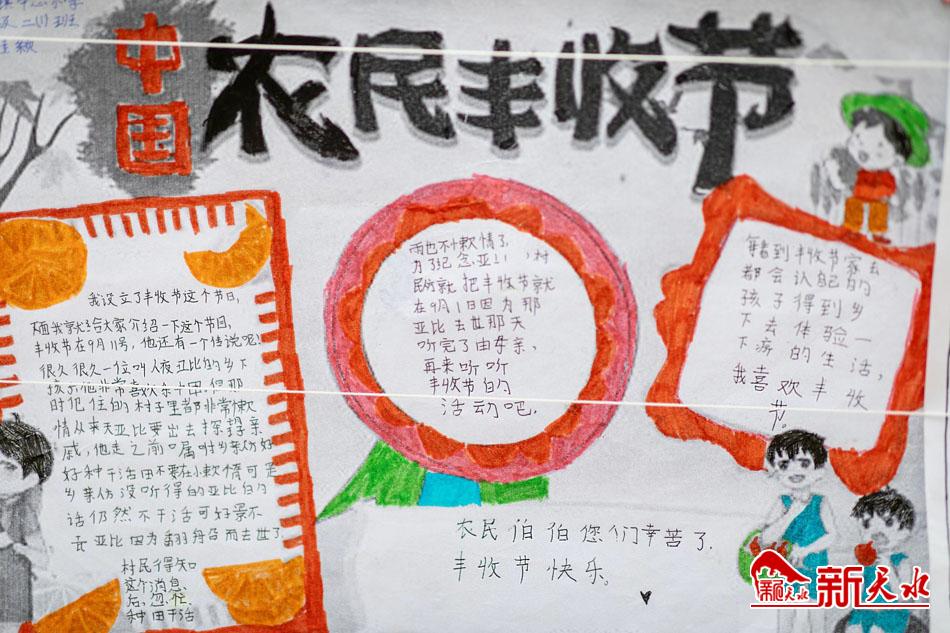 二(1)班
中国
农民丰收节
我设立了丰收节这个节日,
下面我就给大家介绍一下这个节日,
丰收节在9月11号,他还有一个传说呢!
很久很久一位叫人夜亚比的乡下
孩子他非常喜欢
时他住的村子里都非常懒
情从某天亚比要出去探望亲
戚,他走之前口属咐乡亲仿好
好种干活田不要在小懒惰可是
乡亲仿没听得的亚比白的
话仍然不干活可好景不
长亚比因为翻舟名而去世了.
村民得知
这个消息,
后,忽忙
种田干活
而也不十懒情了,
为了纪念亚比,村
民就把丰收节就
在9月1日因为那
亚比去世那天
听完了由来,
再来听听
丰收节白的
活动吧.
每到丰收节家长
都会认自己的
孩子得到乡
下去体验一
下病的生活,
我喜欢丰收
节。
农民伯伯您们幸苦了.
丰收节快乐。
新天水
新天水